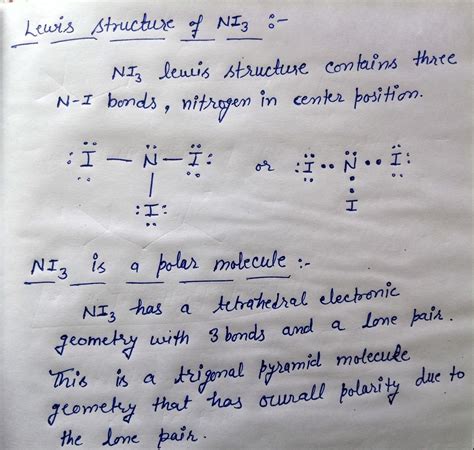 Lewis structure of NI3 :-
NI3 lewis structure contains three
N-I bonds, nitrogen in center position.
:Ï — N̈ — Ï: or :Ï •• N̈ •• Ï:
:I: I
NI3 is a polar molecule :-
NI3 has a tetrahedral electronic
geometry with 3 bonds and a lone pair.
This is a trigonal pyramid molecule
geometry that has ovrall polarity due to
the lone pair.